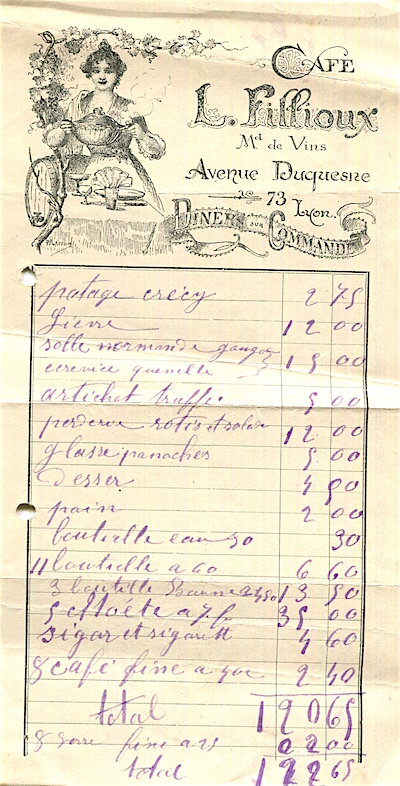 CAFÉ
L. Fillioux
Md de Vins
Avenue Duquesne
73 Lyon.
DINERS SUR COMMANDE
potage crécy 2 75
Lievre 12 00
solle normande
quenelle 15 00
artichot truffe 5 00
perderau rotis et salade 12 00
glasse panachés 5 00
desser 4 50
pain 2 00
bouteille eau 30 30
11 bouteille a 60 6 60
3 bouteille 13 50
5 a 7 f. 35 00
sigar et sigarett 4 60
8 café fine a 30c 2 40
total 120 65
8 verre fine a 25 02 00
total 122 65